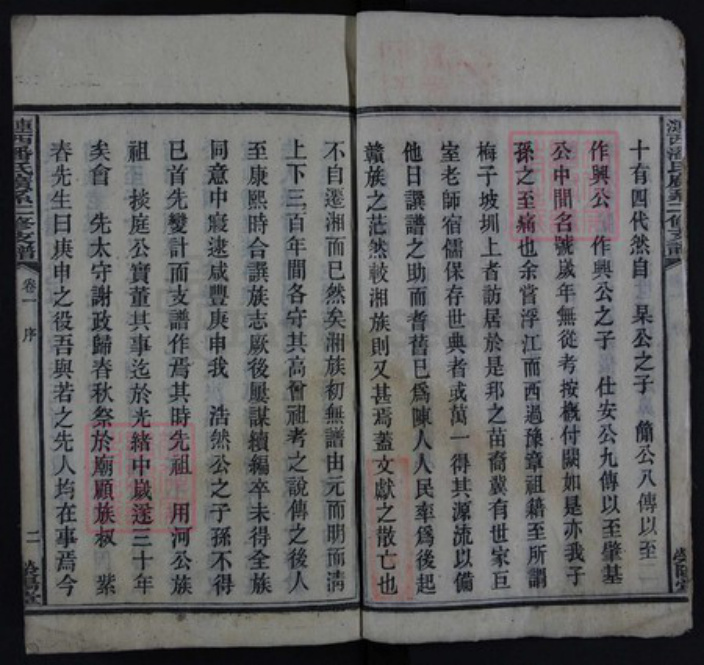 十有四代然自 杲公之子 簡公八傳以至
作興公 作興公之子 仕安公九傳以至肇基
公中間名號歲年無從考按概付闕如是亦我子
孫之至痛也余嘗浮江而西過豫章祖籍至所謂
梅子坡圳上者訪居於是邦之苗裔冀有世家巨
室老師宿儒保存世典者或萬一得其源流以備
他日譔譜之助而耆舊已為陳人人民率為後起
贛族之茫然較湘族則又甚焉蓋文獻之散亡也
漣西潘氏
二修支譜
卷一 序
二
不自遷湘而已然矣湘族初無譜由元而明而淸
上下三百年間各守其高曾祖考之說傳之後人
至康熙時合譔族志厥後屢謀續編卒未得全族
同意中寢逮咸豐庚申我 浩然公之子孫不得
已首先變計而支譜作焉其時先祖 用河公族
祖 掞庭公實董其事迄於光緒中歲遂三十年
矣會 先太守謝政歸春秋祭於廟顧族叔 紫
春先生曰庚申之役吾與若之先人均在事焉今